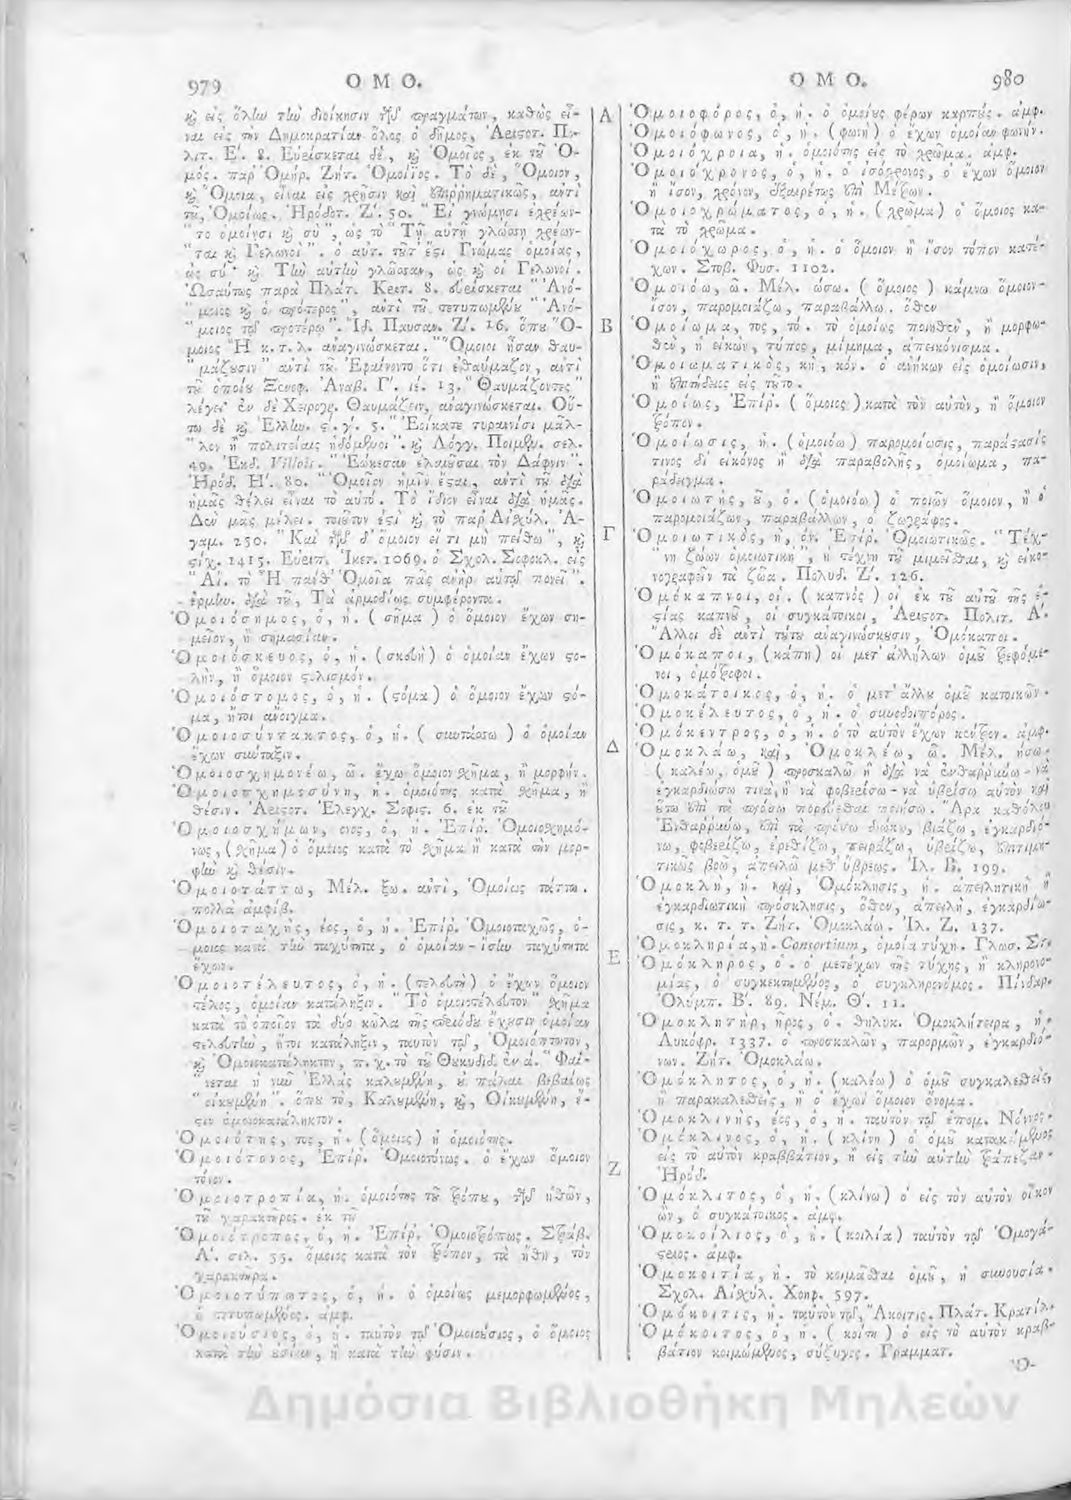 979 Ο Μ Ο.
καὶ εἰς ὅλην τὴν διοίκησιν τῶν πραγμάτων, καθὼς εἶ-
ναι εἰς τὴν Δημοκρατίαν ὅλος ὁ δῆμος, Ἀριστ. Πο-
λιτ. Ε΄. 8. Εὑρίσκεται δὲ, καὶ Ὁμοῖος, ἐκ τοῦ Ὁ-
μός. παρ' Ὁμήρ. Ζήτ. Ὁμοίϊος. Τὸ δὲ, Ὅμοιον,
καὶ Ὅμοια, εἶναι εἰς χρῆσιν καὶ ἐπιρρηματικῶς, ἀντὶ
τοῦ, Ὁμοίως. Ἡρόδοτ. Ζ΄. 50. "Εἰ γνώμῃσι ἐχρέων-
"το ὁμοίῃσι καὶ σὺ", ὡς τὸ "Τῇ αὐτῇ γλώσσῃ χρέων-
"ται καὶ Γελωνοὶ". ὁ αὐτ. τοῦτ' ἔστι Γνώμας ὁμοίας,
ὡς σύ· καὶ Τὴν αὐτὴν γλῶσσαν, ὡς καὶ οἱ Γελωνοί.
Ὡσαύτως παρὰ Πλάτ. Κριτ. 8. εὑρίσκεται "Ἀνό-
"μοιος καὶ ὁ πρότερος", ἀντὶ τοῦ τετυπωμένου "Ἀνό-
"μοιος τῷ προτέρῳ". Ἰδ. Παυσαν. Ζ΄. 16. ὅπου Ὅ-
μοιος Ἢ κ.τ.λ. ἀναγινώσκεται. "Ὅμοιοι ἦσαν θαυ-
"μάζουσιν" ἀντὶ τοῦ Ἐφαίνοντο ὅτι ἐθαύμαζον, ἀντὶ
τοῦ ὁποίου Ξενοφ. Ἀναβ. Γ΄. ιέ. 13. "Θαυμάζοντες"
λέγει· ἐν δὲ Χειρογρ. Θαυμάζειν, ἀναγινώσκεται. Οὕ-
τω δὲ καὶ Ἑλλην. ς΄. γ΄. 5. "Ἐοίκατε τυραννίσι μᾶλ-
"λον ἢ πολιτείαις ἡδόμενοι". καὶ Λόγγ. Ποιμεν. σελ.
49. Ἐκδ. Villois. "Ἐῴκεσαν ἐλαύσαι τὸν Δάφνιν".
Ἡρόδ. Η΄. 80. "Ὁμοῖον ἡμῖν ἔσται, ἀντὶ τοῦ διὰ
ἡμᾶς θέλει εἶναι τὸ αὐτό. Τὸ ἴδιον εἶναι διὰ ἡμᾶς.
Δὲν μᾶς μέλει. τοιοῦτον ἐστὶ καὶ τὸ παρ' Αἰσχύλ. Ἀ-
γαμ. 250. "Καὶ τῶν δ' ὅμοιον εἴ τι μὴ πείθω", καὶ
στίχ. 1415. Εὐριπ. Ἱκετ. 1069. ὁ Σχολ. Σοφοκλ. εἰς
"Αἴ. τὸ "Ἡ πανθ' Ὅμοια πᾶς ἀνὴρ αὐτῷ πονεῖ".
ἑρμην. διὰ τοῦ, Τὰ ἁρμοδίως συμφέροντα.
Ὁμοιόσημος, ὁ, ἡ. (σῆμα) ὁ ὅμοιον ἔχων ση-
μεῖον, ἢ σημασίαν.
Ὁμοιόσκευος, ὁ, ἡ. (σκευὴ) ὁ ὁμοίαν ἔχων στο-
λὴν, ἢ ὅμοιον στολισμόν.
Ὁμοιόστομος, ὁ, ἡ. (στόμα) ὁ ὅμοιον ἔχων στό-
μα, ἤτοι ἄνοιγμα.
Ὁμοιοσύντακτος, ὁ, ἡ. (συντάσσω) ὁ ὁμοίαν
ἔχων σύνταξιν.
Ὁμοιοσχημονέω, ῶ. ἔχω ὅμοιον σχῆμα, ἢ μορφήν.
Ὁμοιοσχημοσύνη, ἡ. ὁμοιότης κατὰ σχῆμα, ἢ
θέσιν. Ἀριστ. Ἔλεγχ. Σοφις. 6. ἐκ τοῦ
Ὁμοιοσχήμων, ονος, ὁ, ἡ. Ἐπίρ. Ὁμοιοσχημό-
νως, (σχῆμα) ὁ ὅμοιος κατὰ τὸ σχῆμα ἢ κατὰ τὴν μορ-
φὴν καὶ θέσιν.
Ὁμοιοτάττω, Μέλ. ξω. ἀντὶ, Ὁμοίως τάττω.
πολλὰ ἀμφίβ.
Ὁμοιοταχὴς, έος, ὁ, ἡ. Ἐπίρ. Ὁμοιοταχῶς, ὅ-
μοιος κατὰ τὴν ταχύτητα, ὁ ὁμοίαν - ἴσην ταχύτητα
ἔχων.
Ὁμοιοτέλευτος, ὁ, ἡ. (τελευτὴ) ὁ ἔχων ὅμοιον
τέλος, ὁμοίαν κατάληξιν. "Τὸ ὁμοιοτέλευτον" σχῆμα
κατὰ τὸ ὁποῖον τὰ δύο κῶλα τῆς περιόδου ἔχουσιν ὁμοίαν
τελευτὴν, ἤτοι κατάληξιν, ταυτὸν τῷ, Ὁμοιόπτωτον,
καὶ Ὁμοιοκατάληκτον, π.χ. τὸ τοῦ Θουκυδίδ. ἐν ἀ. "Φαί-
"νεται ἡ νῦν Ἑλλὰς καλουμένη, οὐ πάλαι βεβαίως
"οἰκουμένη". ὅπου τὸ, Καλουμένη, καὶ, Οἰκουμένη, ἔ-
στιν ὁμοιοκατάληκτον.
Ὁμοιότης, τος, ἡ. (ὅμοιος) ἡ ὁμοιότης.
Ὁμοιότονος, Ἐπίρ. Ὁμοιοτόνως. ὁ ἔχων ὅμοιον
τόνον.
Ὁμοιοτροπία, ἡ. ὁμοιότης τοῦ τρόπου, τῶν ἠθῶν,
τοῦ χαρακτῆρος. ἐκ τοῦ
Ὁμοιότροπος, ὁ, ἡ. Ἐπίρ. Ὁμοιοτρόπως. Στράβ.
Α΄. σελ. 35. ὅμοιος κατὰ τὸν τρόπον, τὰ ἤθη, τὸν
χαρακτῆρα.
Ὁμοιοτύπωτος, ὁ, ἡ. ὁ ὁμοίως μεμορφωμένος,
ὁ τετυπωμένος. ἀμφ.
Ὁμοιούσιος, ὁ, ἡ. ταυτὸν τῷ Ὁμοιοέσιος, ὁ ὅμοιος
κατὰ τὴν οὐσίαν, ἢ κατὰ τὴν φύσιν.
Α
Β
Γ
Δ
Ε
Ζ
Ο Μ Ο. 980
Ὁμοιοφόρος, ὁ, ἡ. ὁ ὁμοίους φέρων καρπούς. ἀμφ.
Ὁμοιόφωνος, ὁ, ἡ. (φωνὴ) ὁ ἔχων ὁμοίαν φωνήν.
Ὁμοιόχροια, ἡ. ὁμοιότης εἰς τὸ χρῶμα. ἀμφ.
Ὁμοιόχρονος, ὁ, ἡ. ὁ ἰσόχρονος, ὁ ἔχων ὅμοιον
ἢ ἴσον, χρόνον, ἐξαιρέτως ἐπὶ Μέτρων.
Ὁμοιοχρώματος, ὁ, ἡ. (χρῶμα) ὁ ὅμοιος κα-
τὰ τὸ χρῶμα.
Ὁμοιόχωρος, ὁ, ἡ. ὁ ὅμοιον ἢ ἴσον τόπον κατέ-
χων. Στοβ. Φυσ. 1102.
Ὁμοιόω, ῶ. Μέλ. ώσω. (ὅμοιος) κάμνω ὅμοιον-
ἴσον, παρομοιάζω, παραβάλλω. ὅθεν
Ὁμοίωμα, τος, τό. τὸ ὁμοίως ποιηθὲν, ἢ μορφω-
θὲν, ἡ εἰκὼν, τύπος, μίμημα, ἀπεικόνισμα.
Ὁμοιωματικὸς, κὴ, κόν. ὁ ἀνήκων εἰς ὁμοίωσιν,
ἢ ἐπιτήδειος εἰς τοῦτο.
Ὁμοίως, Ἐπίρ. (ὅμοιος) κατὰ τὸν αὐτὸν, ἢ ὅμοιον
τρόπον.
Ὁμοίωσις, ἡ. (ὁμοιόω) παρομοίωσις, παράστασίς
τινος δι' εἰκόνος ἢ διὰ παραβολῆς, ὁμοίωμα, πα-
ράδειγμα.
Ὁμοιωτὴς, οῦ, ὁ. (ὁμοιόω) ὁ ποιῶν ὅμοιον, ἢ ὁ
παρομοιάζων, παραβάλλων, ὁ ζωγράφος.
Ὁμοιωτικὸς, ἡ, όν. Ἐπίρ. Ὁμοιωτικῶς. "Τέχ-
"νη ζώων ὁμοιωτικὴ", ἡ τέχνη τοῦ μιμεῖσθαι, καὶ εἰκο-
νογραφεῖν τὰ ζῶα. Πολυδ. Ζ΄. 126.
Ὁμόκαπνοι, οἱ. (καπνὸς) οἱ ἐκ τοῦ αὐτοῦ τῆς ἑ-
στίας καπνοῦ, οἱ συγκάτοικοι, Ἀριστ. Πολιτ. Α΄.
Ἄλλοι δὲ ἀντὶ τούτου ἀναγινώσκουσιν, Ὁμόκαποι.
Ὁμόκαποι, (κάπη) οἱ μετ' ἀλλήλων ὁμοῦ τρεφόμε-
νοι, ὁμότροφοι.
Ὁμοκάτοικος, ὁ, ἡ. ὁ μετ' ἄλλου ὁμοῦ κατοικῶν.
Ὁμοκέλευτος, ὁ, ἡ. ὁ συνοδοιπόρος.
Ὁμόκεντρος, ὁ, ἡ. ὁ τὸ αὐτὸν ἔχων κέντρον. ἀμφ.
Ὁμοκλάω, καὶ, Ὁμοκλέω, ῶ. Μέλ. ήσω.
(καλέω, ὁμοῦ) προσκαλῶ ἢ διὰ νὰ ἐνθαρρύνω - νὰ
ἐγκαρδιώσω τινὰ, ἢ νὰ φοβερίσω - νὰ ὑβρίσω αὐτὸν καὶ
οὕτω ἐπὶ τὰ πρόσω πορεύεσθαι ποιήσω. Ἄρα καθόλου
Ἐνθαρρύνω, ἐπὶ τὰ πρόσω διώκω, βιάζω, ἐγκαρδιό-
νω, φοβερίζω, ἐρεθίζω, πειράζω, ὑβρίζω, ἐπιτιμη-
τικῶς βοῶ, ἀπειλῶ μεθ' ὕβρεως. Ἰλ. Β. 199.
Ὁμοκλὴ, ἡ. καὶ, Ὁμόκλησις, ἡ. ἀπειλητικὴ ἢ
ἐγκαρδιωτικὴ πρόσκλησις, ὅθεν, ἀπειλὴ, ἐγκαρδίω-
σις, κ. τ. τ. Ζήτ. Ὁμοκλάω. Ἰλ. Ζ. 137.
Ὁμοκληρία, ἡ. Consortium, ὁμοία τύχη. Γλωσ. Στ.
Ὁμόκληρος, ὁ. ὁ μετέχων τῆς τύχης, ἢ κληρονο-
μίας, ὁ συγκεκτημένος, ὁ συγκληρονόμος. Πίνδαρ.
Ὀλύμπ. Β΄. 89. Νέμ. Θ΄. 11.
Ὁμοκλητὴρ, ῆρος, ὁ. θηλυκ. Ὁμοκλήτειρα, ἡ.
Λυκόφρ. 1337. ὁ προσκαλῶν, παρορμῶν, ἐγκαρδιό-
νων. Ζήτ. Ὁμοκλάω.
Ὁμόκλητος, ὁ, ἡ. (καλέω) ὁ ὁμοῦ συγκαλεσθεὶς
ἢ παρακαλεσθεὶς, ἢ ὁ ἔχων ὅμοιον ὄνομα.
Ὁμοκλινὴς, έος, ὁ, ἡ. ταυτὸν τῷ ἑπομ. Νόννος.
Ὁμόκλινος, ὁ, ἡ. (κλίνη) ὁ ὁμοῦ κατακείμενος
εἰς τὸ αὐτὸν κραββάτιον, ἢ εἰς τὴν αὐτὴν τράπεζαν.
Ἡρόδ.
Ὁμόκλιτος, ὁ, ἡ. (κλίνω) ὁ εἰς τὸν αὐτὸν οἶκον
ὢν, ὁ συγκάτοικος. ἀμφ.
Ὁμοκοίλιος, ὁ, ἡ. (κοιλία) ταυτὸν τῷ Ὁμογά-
στριος. ἀμφ.
Ὁμοκοιτία, ἡ. τὸ κοιμᾶσθαι ὁμοῦ, ἡ συνουσία.
Σχολ. Αἰσχύλ. Χοηφ. 597.
Ὁμόκοιτις, ἡ. ταυτὸν τῷ, Ἄκοιτις. Πλάτ. Κρατίλ.
Ὁμόκοιτος, ὁ, ἡ. (κοίτη) ὁ εἰς τὸ αὐτὸν κραβ-
βάτιον κοιμώμενος, σύζυγος. Γραμματ.
Ὁ-
Δημόσια Βιβλιοθήκη Μηλεών